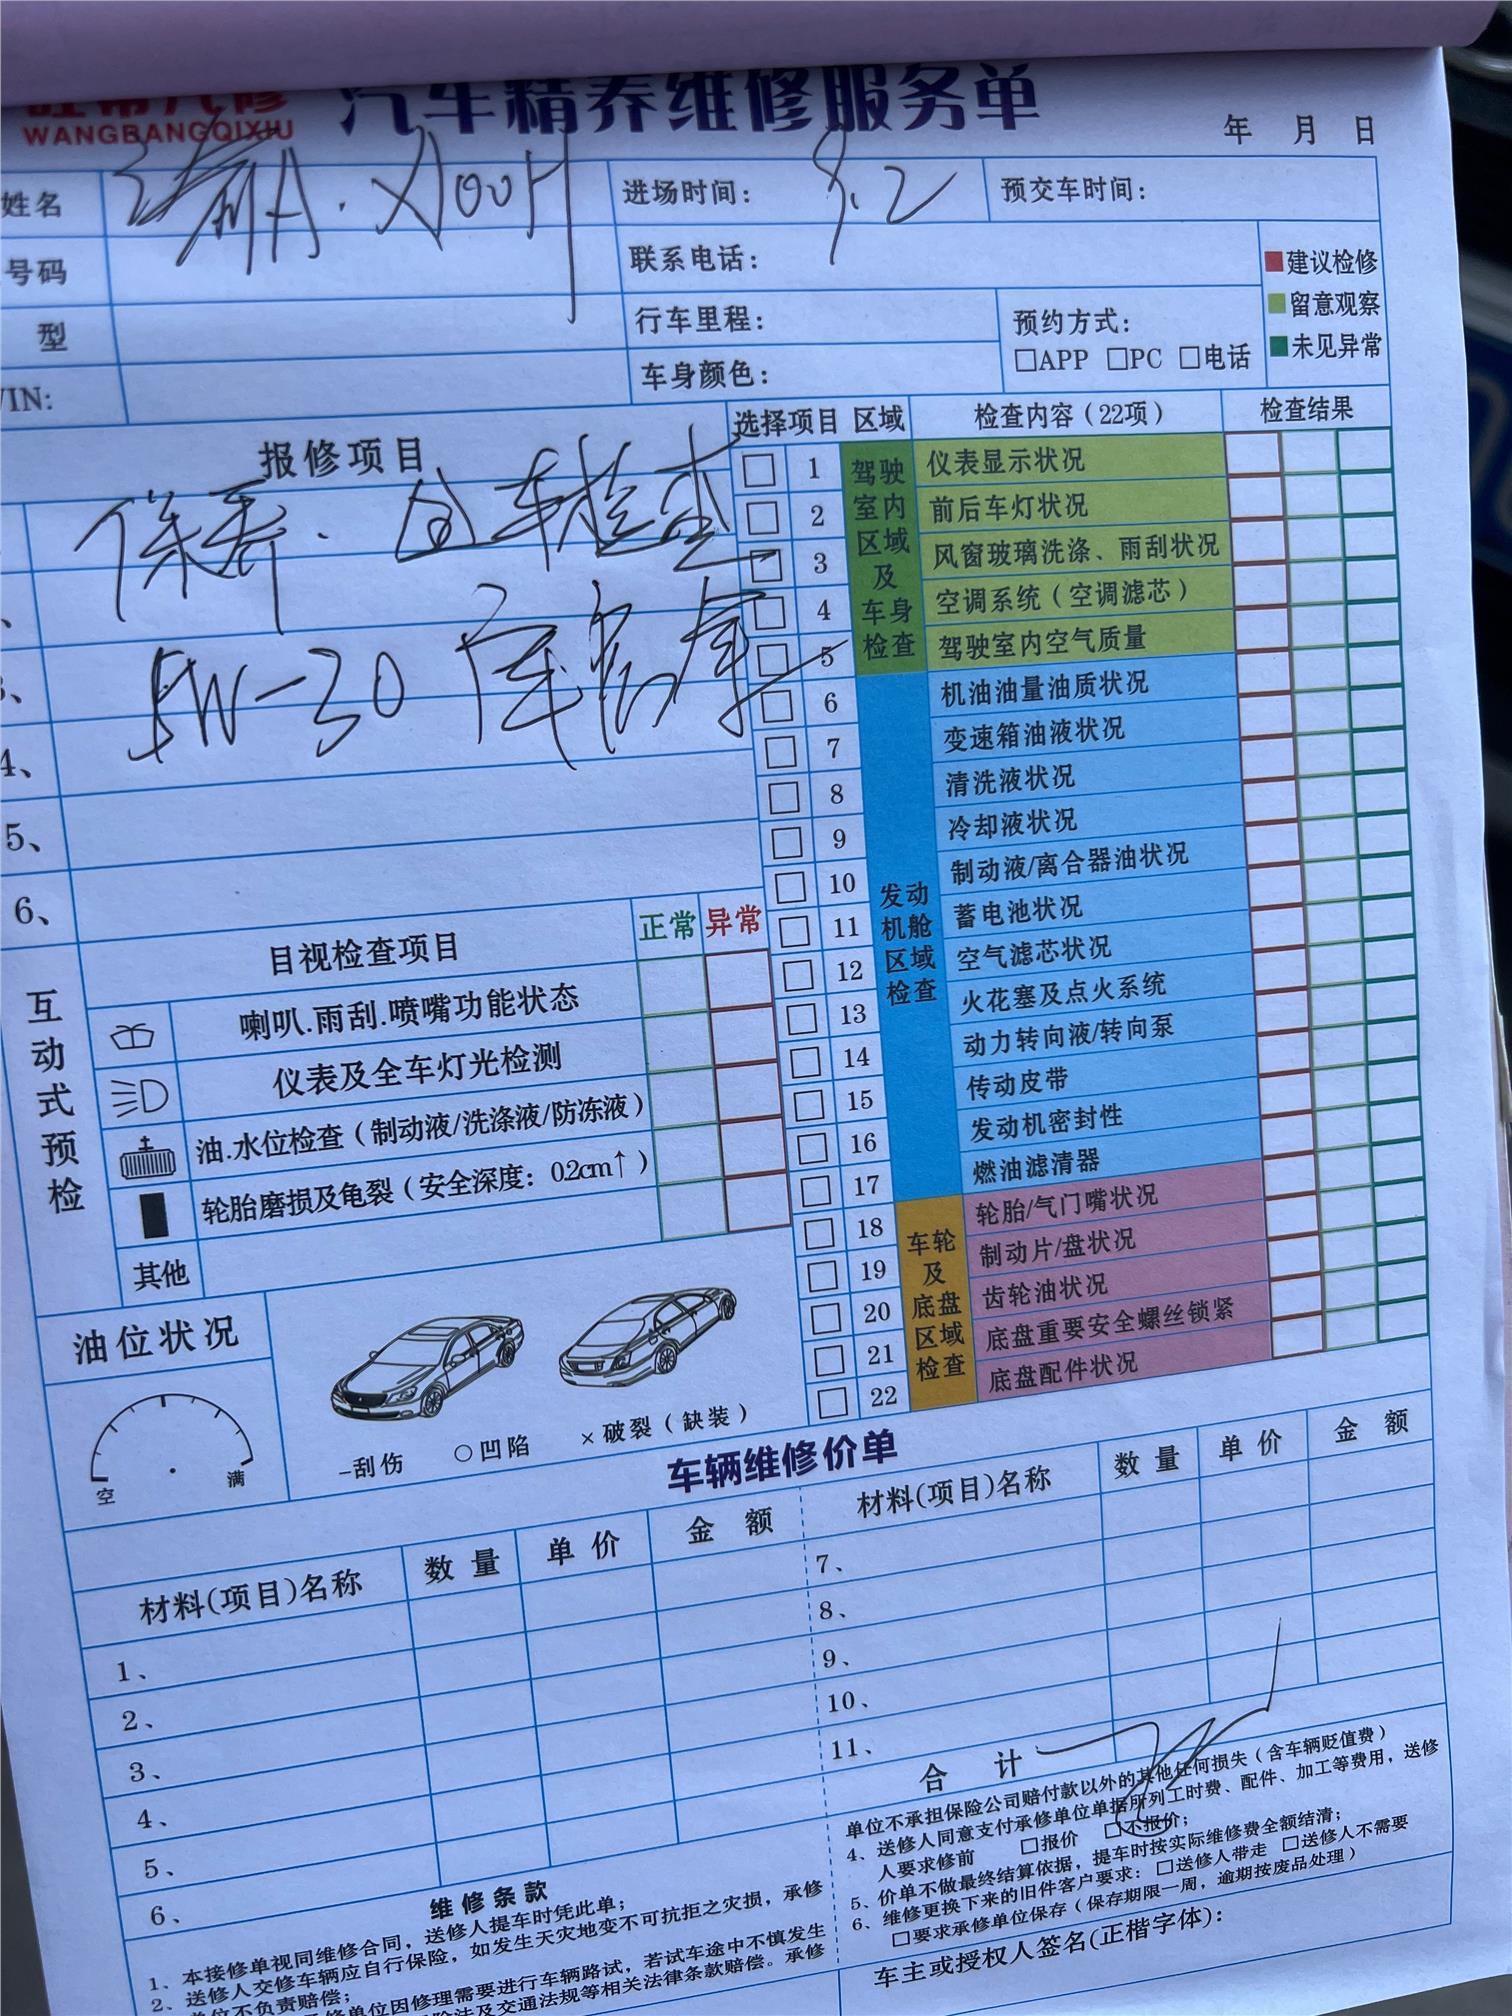 旺帮汽修 汽车精养维修服务单
WANGBANGQIXIU
年 月 日
姓名 进场时间: 9.2 预交车时间:
号码 联系电话:
型 行车里程: 预约方式:
□APP □PC □电话
VIN: 车身颜色:
建议检修
留意观察
未见异常
报修项目
保养. 全车检查
5W-30
3、
4、
5、
6、
选择项目 区域 检查内容(22项) 检查结果
驾驶室内区域及车身检查
1 仪表显示状况
2 前后车灯状况
3 风窗玻璃洗涤、雨刮状况
4 空调系统(空调滤芯)
5 驾驶室内空气质量
发动机舱区域检查
6 机油油量油质状况
7 变速箱油液状况
8 清洗液状况
9 冷却液状况
10 制动液/离合器油状况
11 蓄电池状况
12 空气滤芯状况
13 火花塞及点火系统
14 动力转向液/转向泵
15 传动皮带
16 发动机密封性
17 燃油滤清器
车轮及底盘区域检查
18 轮胎/气门嘴状况
19 制动片/盘状况
20 齿轮油状况
21 底盘重要安全螺丝锁紧
22 底盘配件状况
互动式预检
目视检查项目 正常 异常
喇叭.雨刮.喷嘴功能状态
仪表及全车灯光检测
油.水位检查(制动液/洗涤液/防冻液)
轮胎磨损及龟裂(安全深度: 0.2cm↑)
其他
油位状况
空 满
-刮伤 ○凹陷 ×破裂(缺装)
车辆维修价单
材料(项目)名称 数量 单价 金额
1、
2、
3、
4、
5、
6、
材料(项目)名称 数量 单价 金额
7、
8、
9、
10、
11、
合 计
维修条款
1、本接修单视同维修合同,送修人提车时凭此单;
2、送修人交修车辆应自行保险,如发生天灾地变不可抗拒之灾损,承修
单位不负责赔偿;
修单位因修理需要进行车辆路试,若试车途中不慎发生
险法及交通法规等相关法律条款赔偿。承修
单位不承担保险公司赔付款以外的其他任何损失(含车辆贬值费)
4、送修人同意支付承修单位单据所列工时费、配件、加工等费用,送修
人要求修前 □报价 □不报价;
5、价单不做最终结算依据,提车时按实际维修费全额结清;
6、维修更换下来的旧件客户要求: □送修人带走 □送修人不需要
□要求承修单位保存(保存期限一周,逾期按废品处理)
车主或授权人签名(正楷字体):